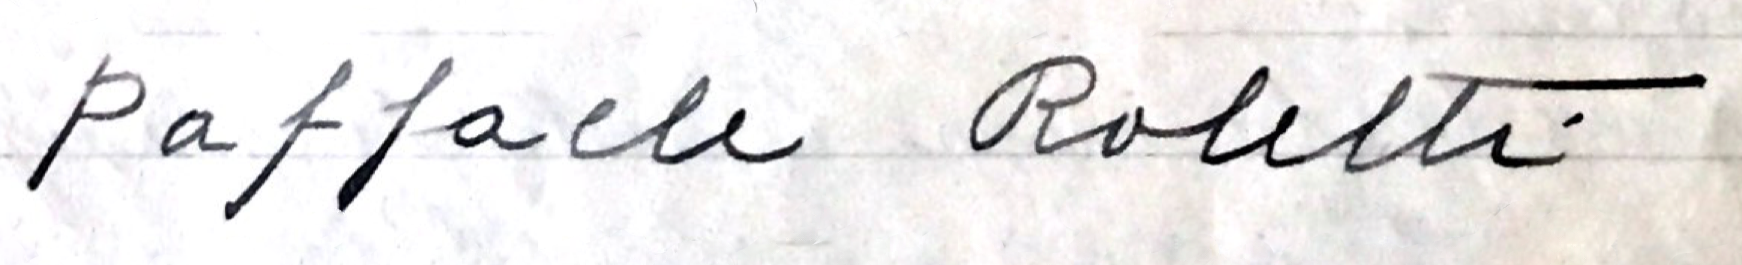 Paffaele Roletti